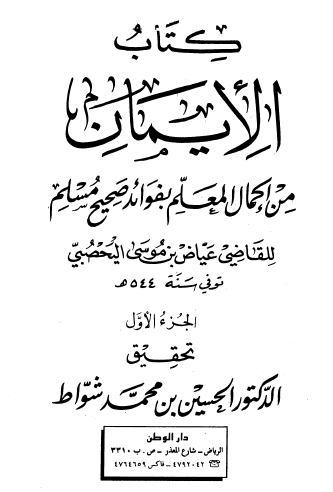 كتاب
الإيمان
من إكمال المعلم بفوائد صحيح مسلم
للقاضي عياض بن موسى اليحصبي
توفي سنة ٥٤٤هـ
الجزء الأول
تحقيق
الدكتور الحسين بن محمد شواط
دار الوطن
الرياض – شارع المعذر – ص . ب ٣٣١٠
☎ ٤٧٩٢٠٤٢ – فاكس ٤٧٦٤٦٥٩